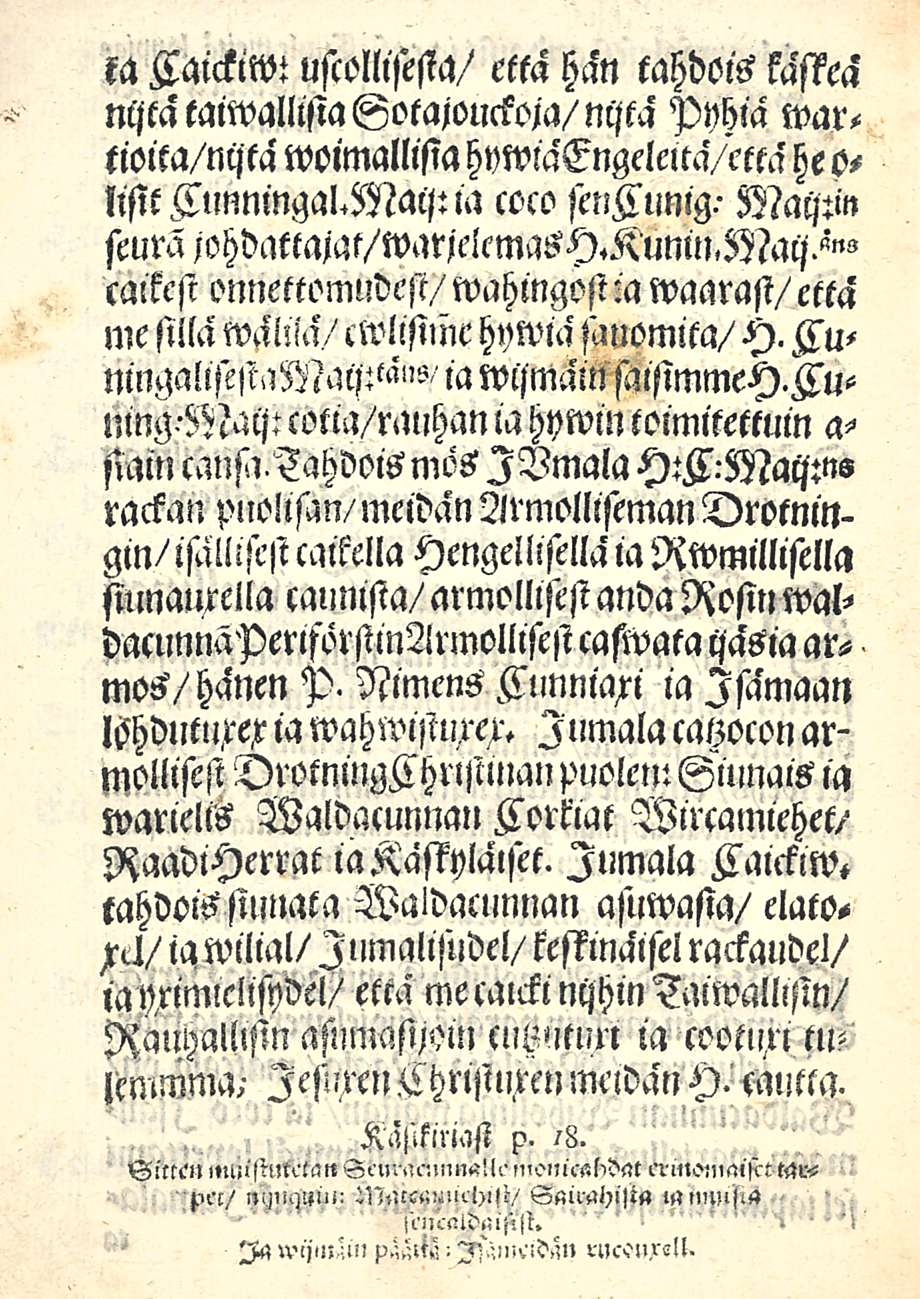 ta Caickiw: uscollisesta/ että hän tahdois käskeä
nijtä taiwallisia Sotajouckoja/ nijtä Pyhiä war-
tioita/nijtä woimallisia hywiä Engeleitä/että he o-
lisit Cunningal. Maij: ia coco sen Cunig: Maij:in
seurã johdattajat/warjelemas H. Kunin. Maij.äns
caikest onnettomudest/ wahingost ia waarast/ että
me sillä wälilä/ cwlisim̃e hywiä sanomita/ H. Cu-
ningalisesta Maij:täns/ ia wijmäin saisimme H. Cu-
ning: Maij: cotia/rauhan ia hywin toimitettuin a-
siain cansa. Tahdois mös JVmala H: C: Maij:ns
rackan puolisan/ meidän Armolliseman Drotnin-
gin/ isällisest caikella Hengellisellä ia Rwmillisella
siunauxella caunista/ armollisest anda Rosin wal-
dacunnã Periförstin Armollisest caswata ijäs ia ar-
mos/ hänen P. Nimens Cunniaxi ia Jsämaan
lohdutuxex ia wahwistuxex. Jumala catzocon ar-
mollisest Drotning Christinan puolen: Siunais ia
warielis Waldacunnan Corkiat Wircamiehet/
Raadi Herrat ia Käskyläiset. Jumala Caickiw.
tahdois siunata Waldacunnan asuwasia/ elato-
xel/ ia wilial/ Jumalisudel/ keskinäisel rackaudel/
ia yximielisydel/ että me caicki nijhin Taiwallisin/
Rauhallisin asumasijoin cutzutuxi ia cootuxi tu-
lemmma; Jesuxen Christuxen meidän H. cautta.
Käsikiriast p. 18.
Sitten muistutetan Seuracunnalle monicahdat erinomaiset tar-
pet/ nijnquin: Matcamiehist/ Sairahista ia muista
sencaldaisist.
Ja wijmäin päätä: Jsämeidän rucouxell.